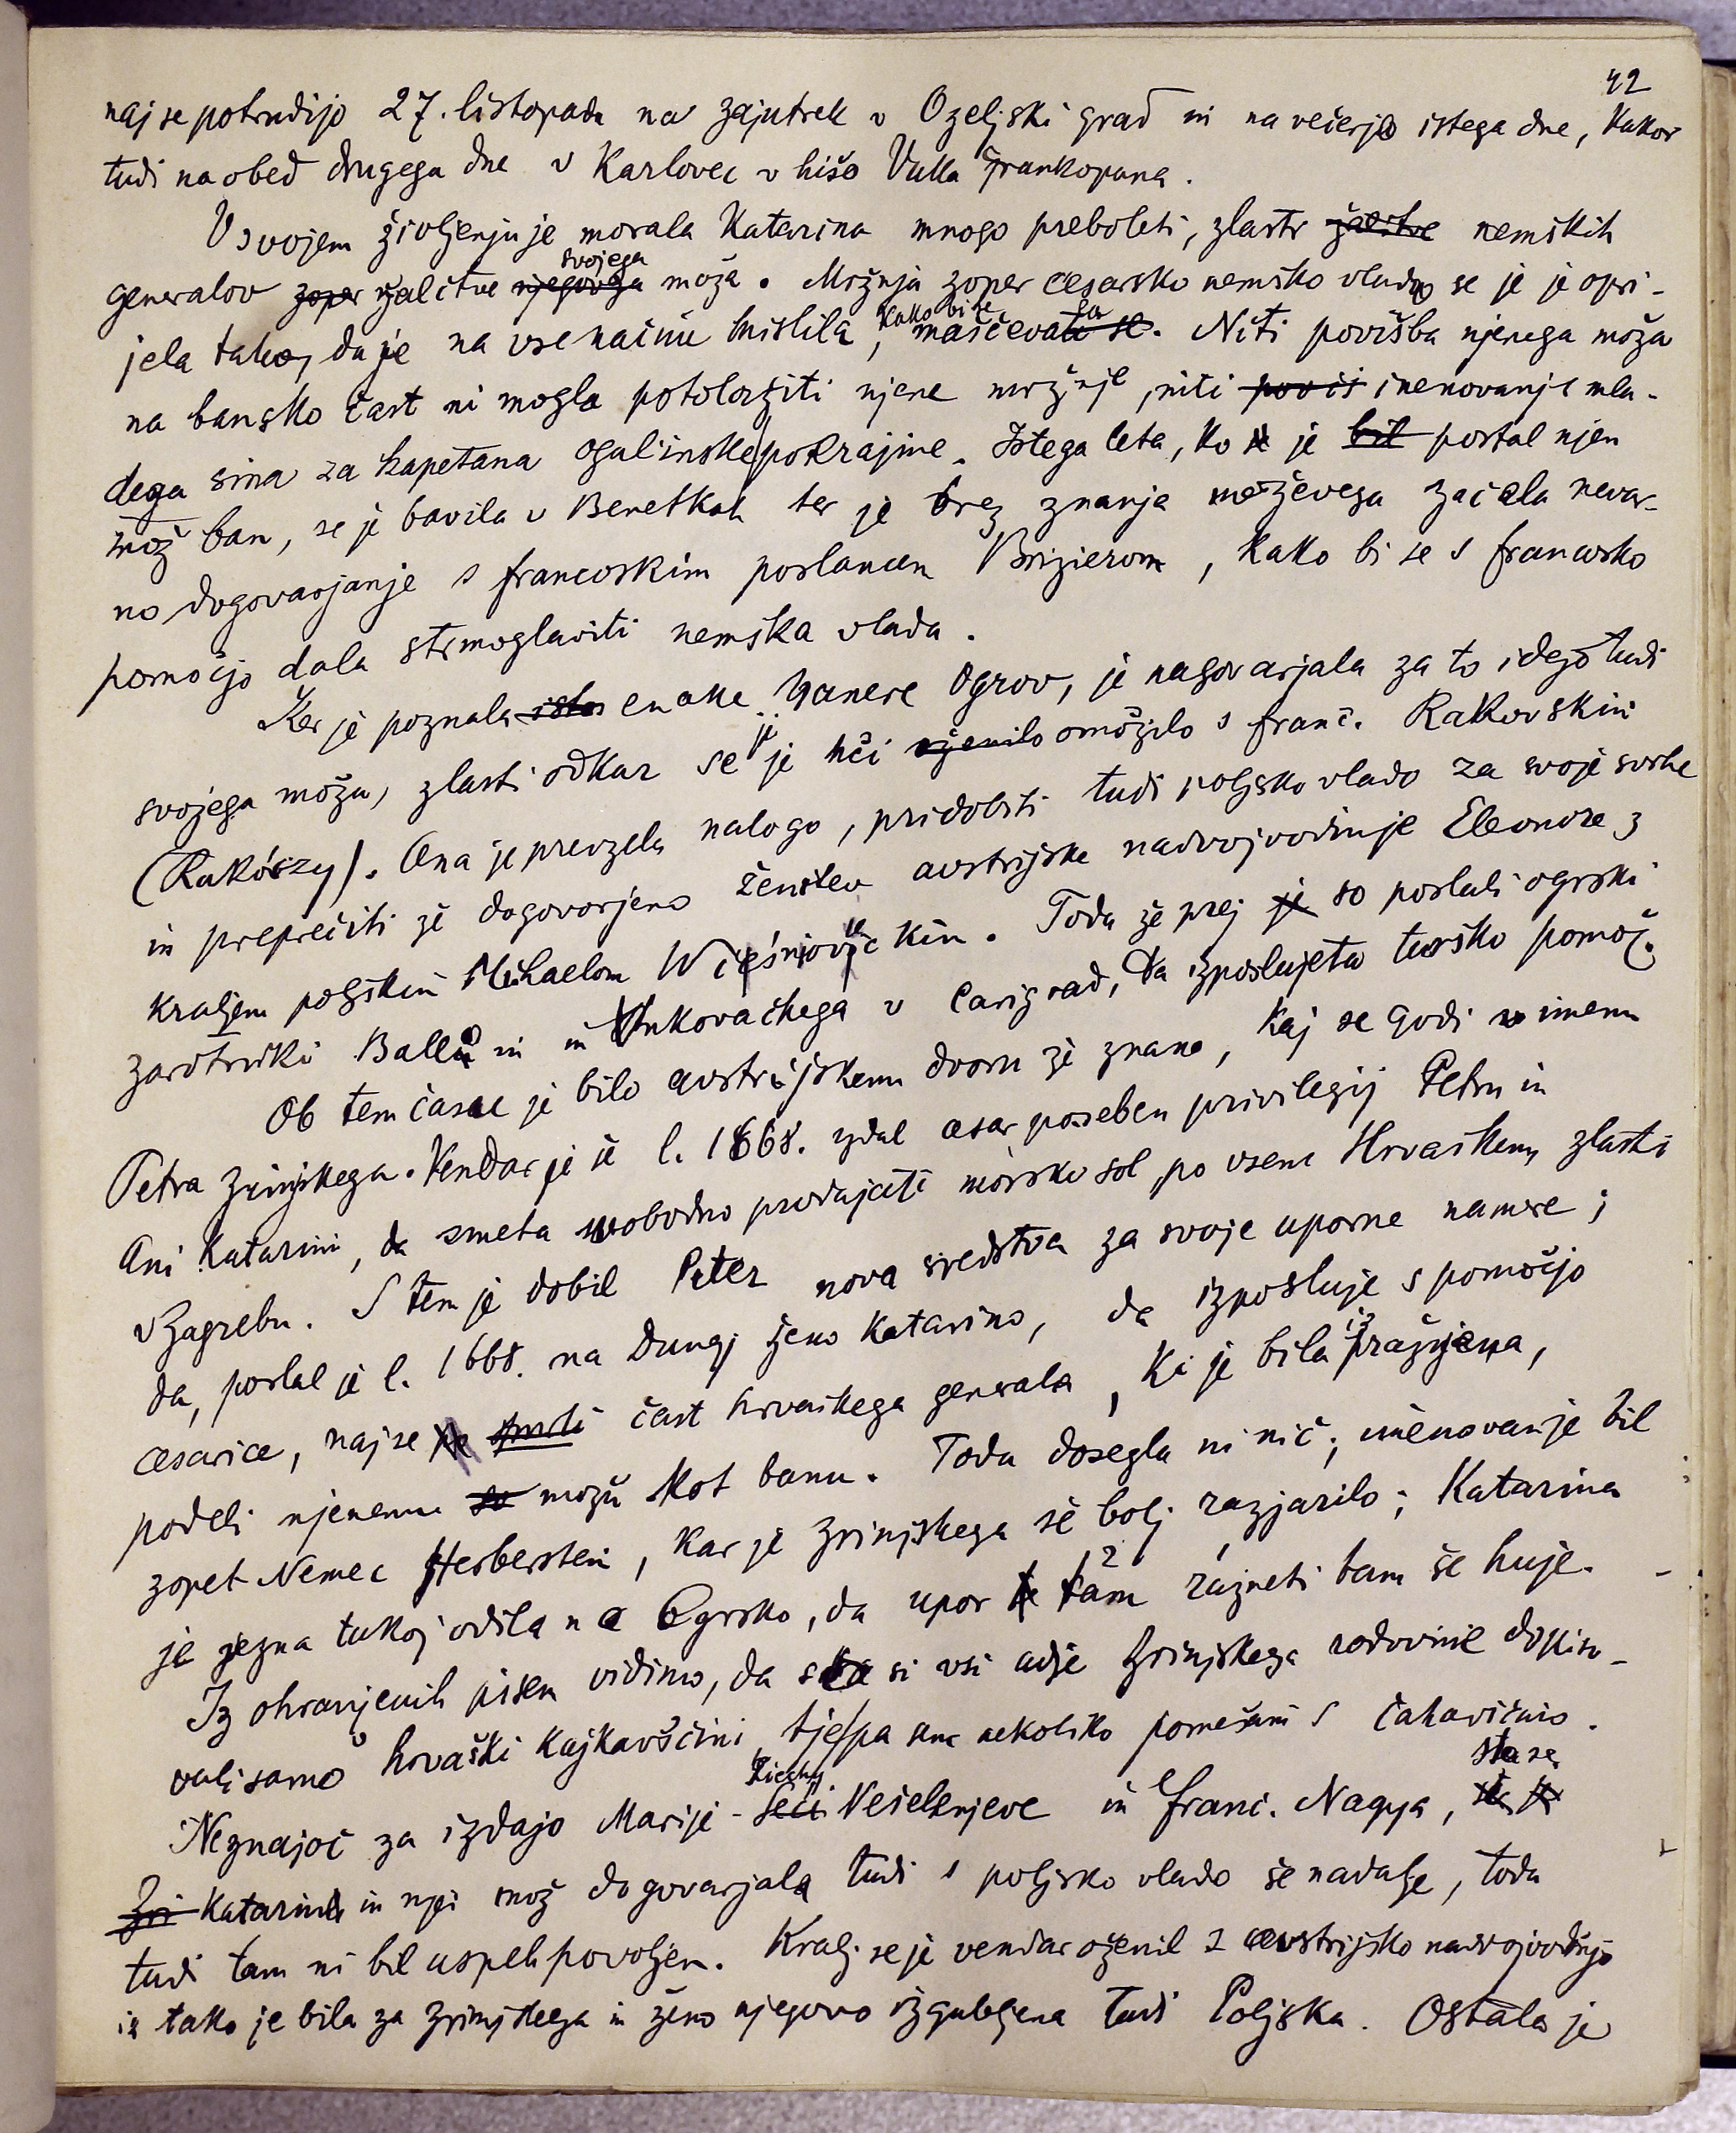 42
naj se potrudijo 27. listopada na zajutrek v Ozeljski grad in na večerjo istega dne, kakor
tudi na obed drugega dne v Karlovec v hišo Vuka Frankopana.
V svojem življenju je morala Katarina mnogo preboleti, zlasti žalitve nemških
generalov zoper žalitve njegovega svojega moža. Mržnja zoper cesarsko nemško vlado se je je opri-
jela tako, da je na vse načine mislila, kako bi se maščevala se. Niti povišba njenega moža
na bansko čast ni mogla potolažiti njene mržnje, niti poviš imenovanje mla-
dega sina za kapetana ogulinske pokrajine. Istega leta, ko je bil postal njen
mož ban, se je bavila v Benetkah ter je brez znanja moževega začela nevar-
no dogovarjanje s francoskim poslancem Brizierom, kako bi se s francosko
pomočjo dala strmoglaviti nemška vlada.
Ker je poznala iste enake namere Ogrov, je nagovarjala za to idejo tudi
svojega moža, zlasti odkar se je je hči oženila omožila s Franč. Rakovskim
(Rakószy). Ona je prevzela nalogo, pridobiti tudi poljsko vlado za svoje svrhe
in preprečiti že dogovorjeno ženitev avstrijske nadvojvodinje Eleonore z
kraljem poljskim Mihaelom Wieśniowieckim. Toda že prej je so poslali ogrski
zarotniki Ballo in in Vukovačkega v Carigrad, da izposlujeta tursko pomoč.
Ob tem času je bilo avstrijskemu dvoru že znano, kaj se godi v imenu
Petra Zrinjskega. Vendar je še l. 1668. izdal cesar poseben privilegij Petru in
Ani Katarini, da smeta svobodno prodajati morsko sol po vsem Hrvaškem, zlasti
v Zagrebu. S tem je dobil Peter nova sredstva za svoje uporne namere;
da, poslal je l. 1668. na Dunaj ženo Katarino, da izposluje s pomočjo
cesarice, naj se čast hrvaškega generala, ki je bila izpražnjena,
podeli njenemu možu kot banu. Toda dosegla ni nič; imenovan je bil
zopet Nemec Herberstein, kar je Zrinjskega še bolj razjarilo; Katarina
je jezna takoj odšla na Ogrsko, da upor tam razneti tam še huje.
Iz ohranjenih pisem vidimo, da so si vsi udje Zrinjskega rodovine dopiso-
vali samo v hrvaški kajkavščini, tje pa nekoliko pomešani s čakavičino.
Neznajoč za izdajo Marije - Seči Szechy Vešelenjeve in Franc. Nagya, sta se
Zri Katarina in nje mož dogovarjala tudi s poljsko vlado še nadalje, toda
tudi tam ni bil uspeh povoljen. Kralj se je vendar oženil z avstrijsko nadvojvodinjo
in tako je bila za Zrinjskega in ženo njegovo izgubljena tudi Poljska. Ostala je